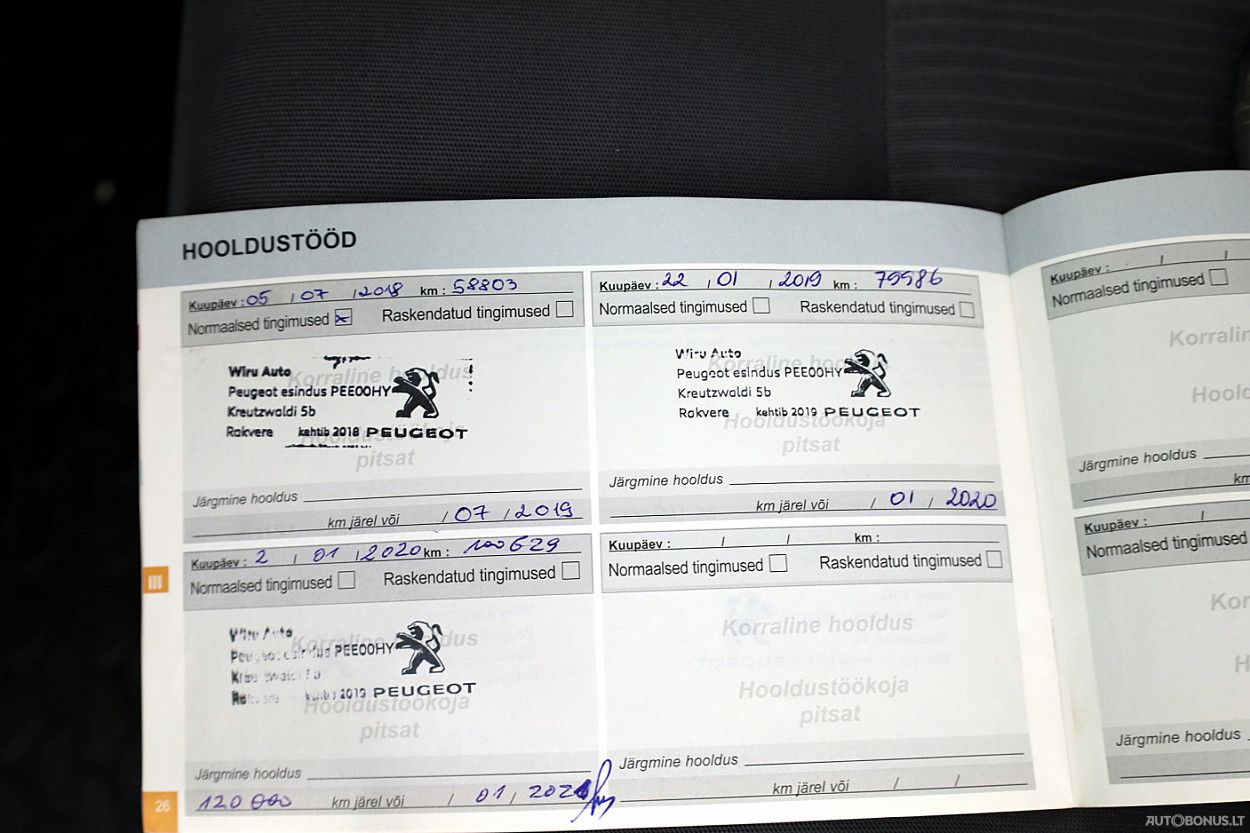 HOOLDUSTÖÖD
Kuupäev : 05 / 07 / 2018 km : 58803
Normaalsed tingimused Raskendatud tingimused
Korraline hooldus
Wiru Auto
Peugeot esindus PEE00HY
Kreutzwaldi 5b
Rakvere kehtib 2018 PEUGEOT
Hooldustöökoja
pitsat
Järgmine hooldus
km järel või / 07 / 2019
Kuupäev : 22 / 01 / 2019 km : 79986
Normaalsed tingimused Raskendatud tingimused
Korraline hooldus
Wiru Auto
Peugeot esindus PEE00HY
Kreutzwaldi 5b
Rakvere kehtib 2019 PEUGEOT
Hooldustöökoja
pitsat
Järgmine hooldus
km järel või / 01 / 2020
Kuupäev : 2 / 01 / 2020 km : 100629
Normaalsed tingimused Raskendatud tingimused
Korraline hooldus
Wiru Auto
PEE00HY
2019 PEUGEOT
Hooldustöökoja
pitsat
Järgmine hooldus
120 000 km järel või / 01 / 2021
Kuupäev : / / km :
Normaalsed tingimused Raskendatud tingimused
Korraline hooldus
Hooldustöökoja
pitsat
Järgmine hooldus
km järel või / /
Kuupäev : / /
Normaalsed tingimused
Korralin
Hoold
Järgmine hooldus
km
Kuupäev : /
Normaalsed tingimused
Kor
H
Järgmine hooldus
III
26
AUTOBONUS.LT